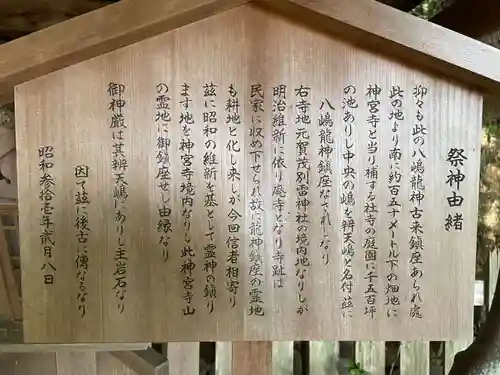 祭神由緒
抑々も此の八嶋龍神古来鎮座あられ居
此の地より南に約百五十メートル下の畑地に
神宮寺と当り補する社寺の庭園に千五百坪
の池ありし中央の嶋を辨天嶋と名付茲に
八嶋龍神鎮座なされしなり
右寺地元賀茂別雷神社の境内地なりしか
明治維新に依り廃寺となり寺跡は
民家に収め下せられ故に龍神鎮座の霊地
も耕地と化し来しが今回信者相寄り
茲に昭和の維新を基として霊神の鎮り
ます地を神宮寺境内なりし此神宮寺山
の霊地に御鎮座せし由縁なり
御神厳は其辨天嶋にありし主岩石なり
因て茲に後古に傳なるなり
昭和参拾壱年貳月八日